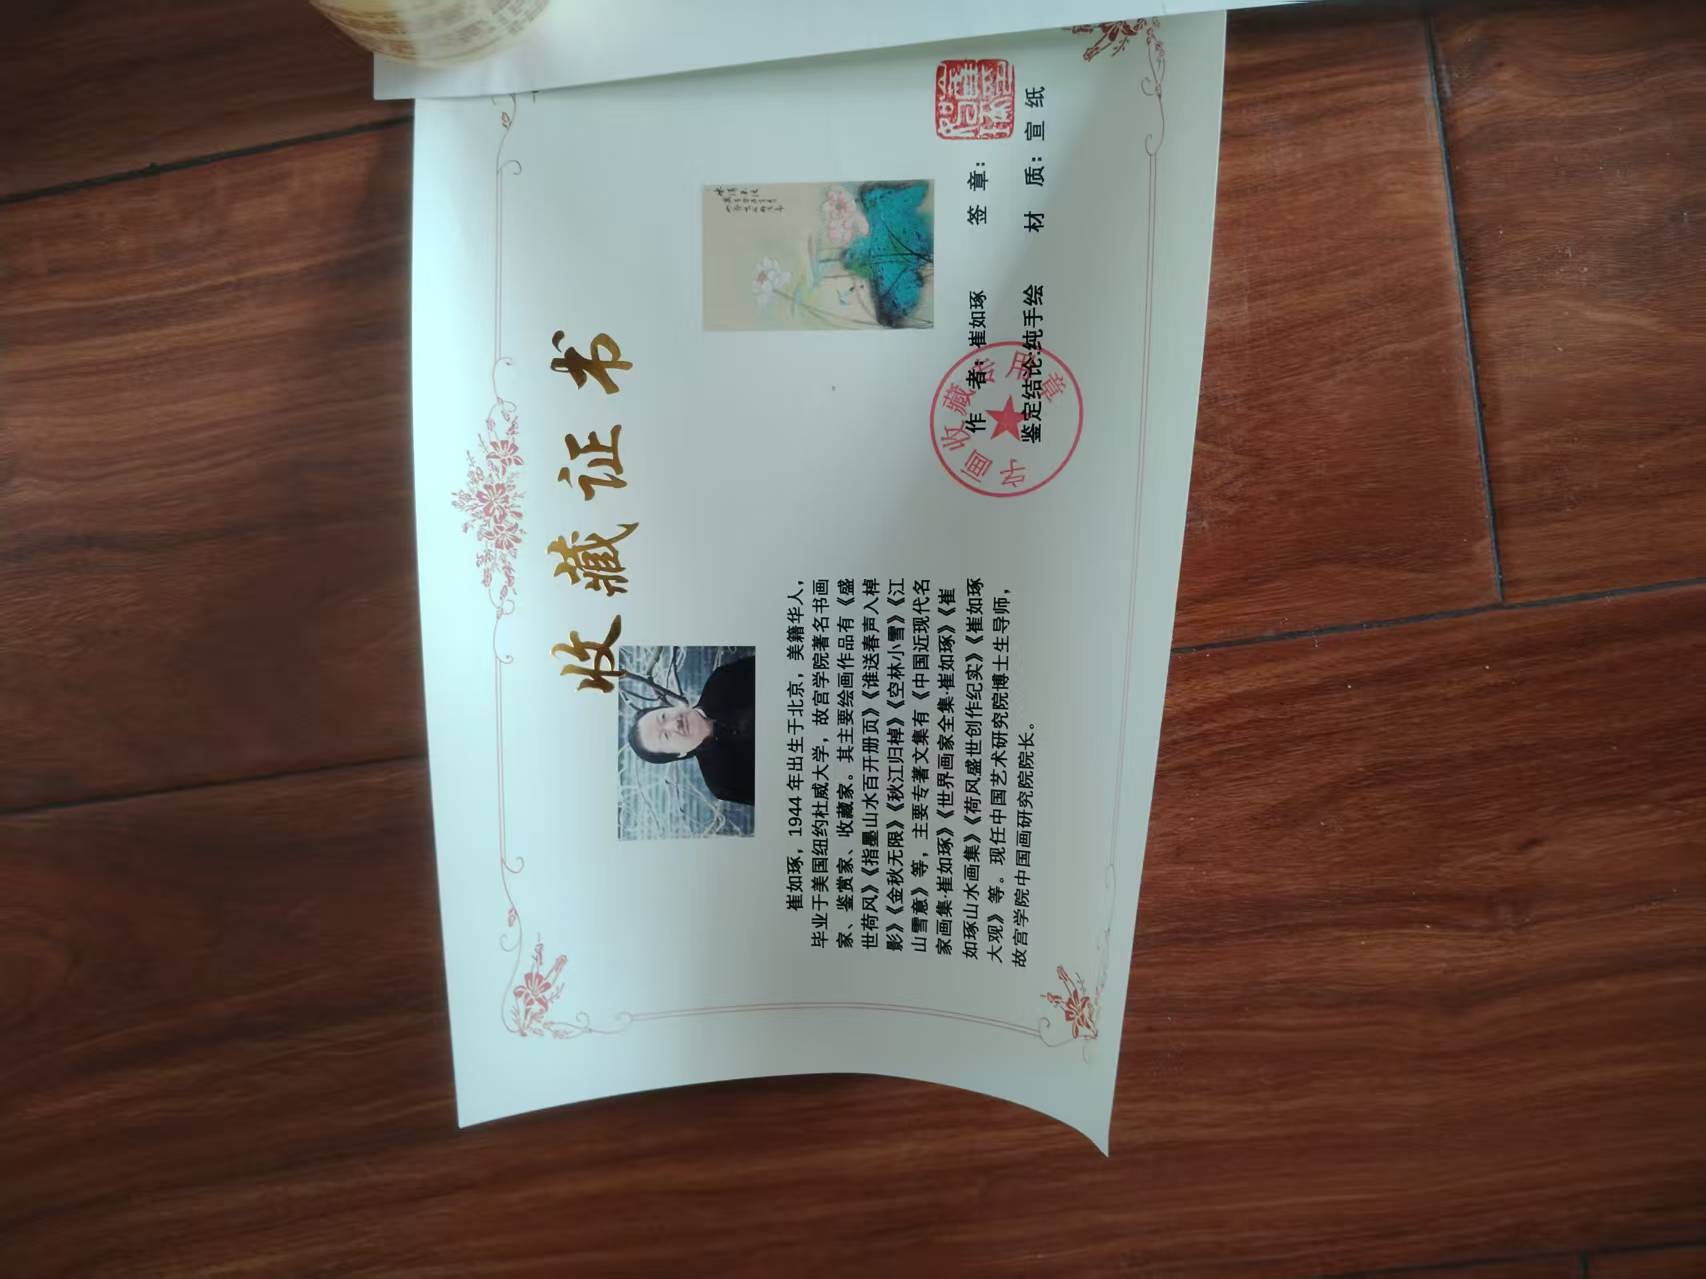 收藏证书
崔如琢，1944年出生于北京，美籍华人，
毕业于美国纽约杜威大学，故宫学院著名书画
家、鉴赏家、收藏家。其主要绘画作品有《盛
世荷风》《指墨山水百开册页》《谁送春声入棹
影》《金秋无限》《秋江归棹》《空林小雪》《江
山雪意》等，主要专著文集有《中国近现代名
家画集·崔如琢》《世界画家全集·崔如琢》《崔
如琢山水画集》《荷风盛世创作纪实》《崔如琢
大观》等。现任中国艺术研究院博士生导师，
故宫学院中国画研究院院长。
作 者：崔如琢 签 章：
鉴定结论:纯手绘 材 质：宣 纸
字画收藏专用章